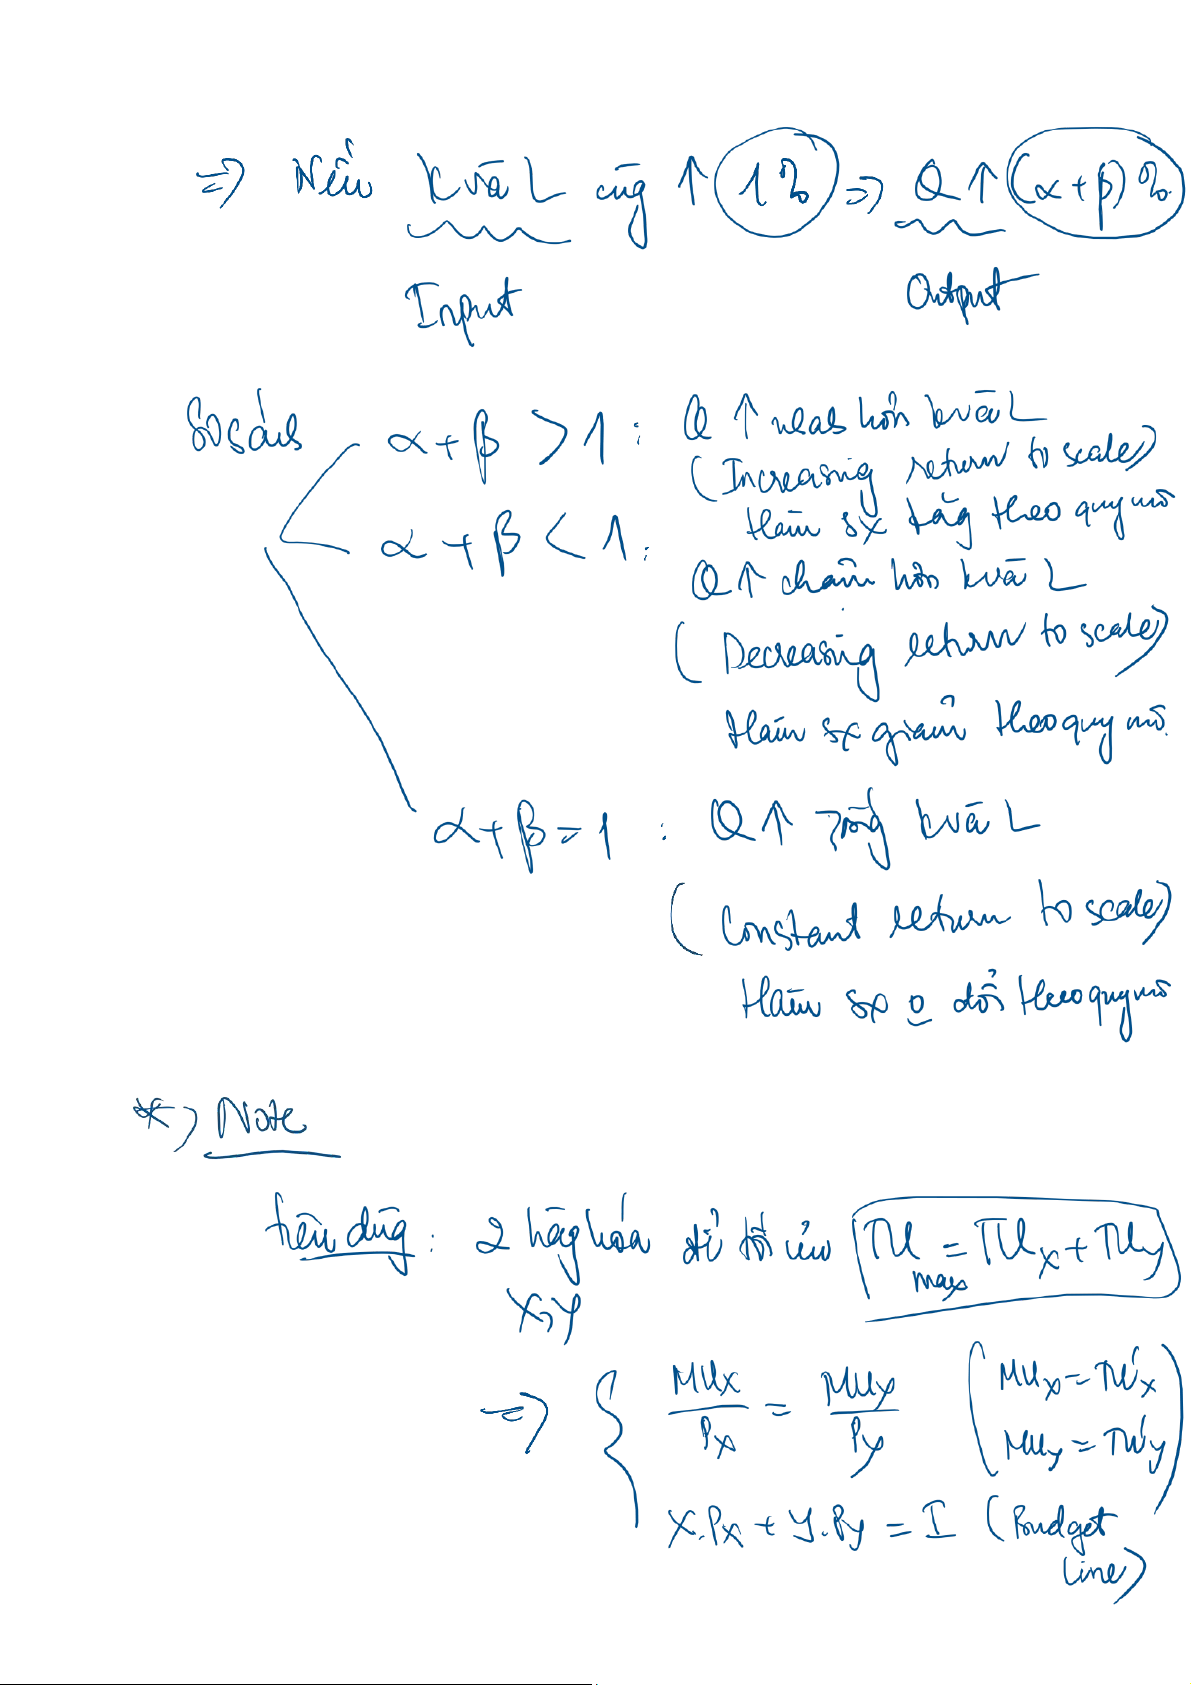 => Nếu K và L cùng ↑ 1% => Q ↑ (α+β)%
Input Output
So sánh α+β > 1 : Q ↑ nhanh hơn K và L
(Increasing return to scale)
Hàm sx tăng theo quy mô
α+β < 1 :
Q ↑ chậm hơn K và L
(Decreasing return to scale)
Hàm sx giảm theo quy mô.
α+β = 1 : Q ↑ bằng K và L
(Constant return to scale)
Hàm sx o đổi theo quy mô
*) Note
Tiêu dùng : 2 hàng hóa để tối ưu TU max = TUx + TUy
X, Y
=> { MUx/Px = MUy/Py (MUx = TU'x
MUy = TU'y)
X.Px + Y.Py = I (Budget
line)